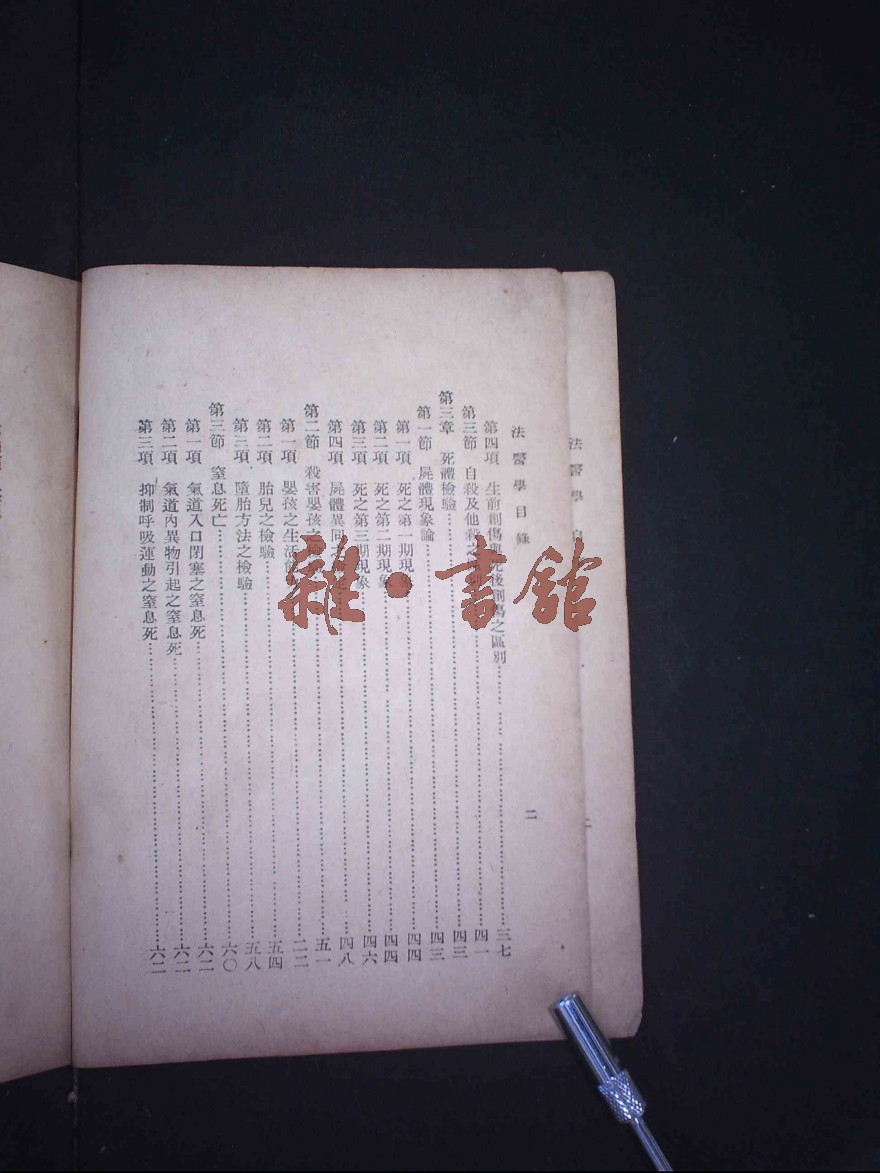 法醫學目錄
二
第四項 生前創傷與死後創傷之區別 三七
第三節 自殺及他殺之 四一
第三章 死體檢驗 四三
第一節 屍體現象論 四三
第一項 死之第一期現象 四四
第二項 死之第二期現象 四四
第三項 死之第三期現象 四六
第四項 屍體異同 四八
第二節 殺害嬰孩之 五一
第一項 嬰孩之生活
第二項 胎兒之檢驗 五四
第三項 墮胎方法之檢驗 五八
第三節 窒息死亡 六〇
第一項 氣道入口閉塞之窒息死 六二
第二項 氣道內異物引起之窒息死 六二
第三項 抑制呼吸運動之窒息死 六二
法醫學
雜·書館